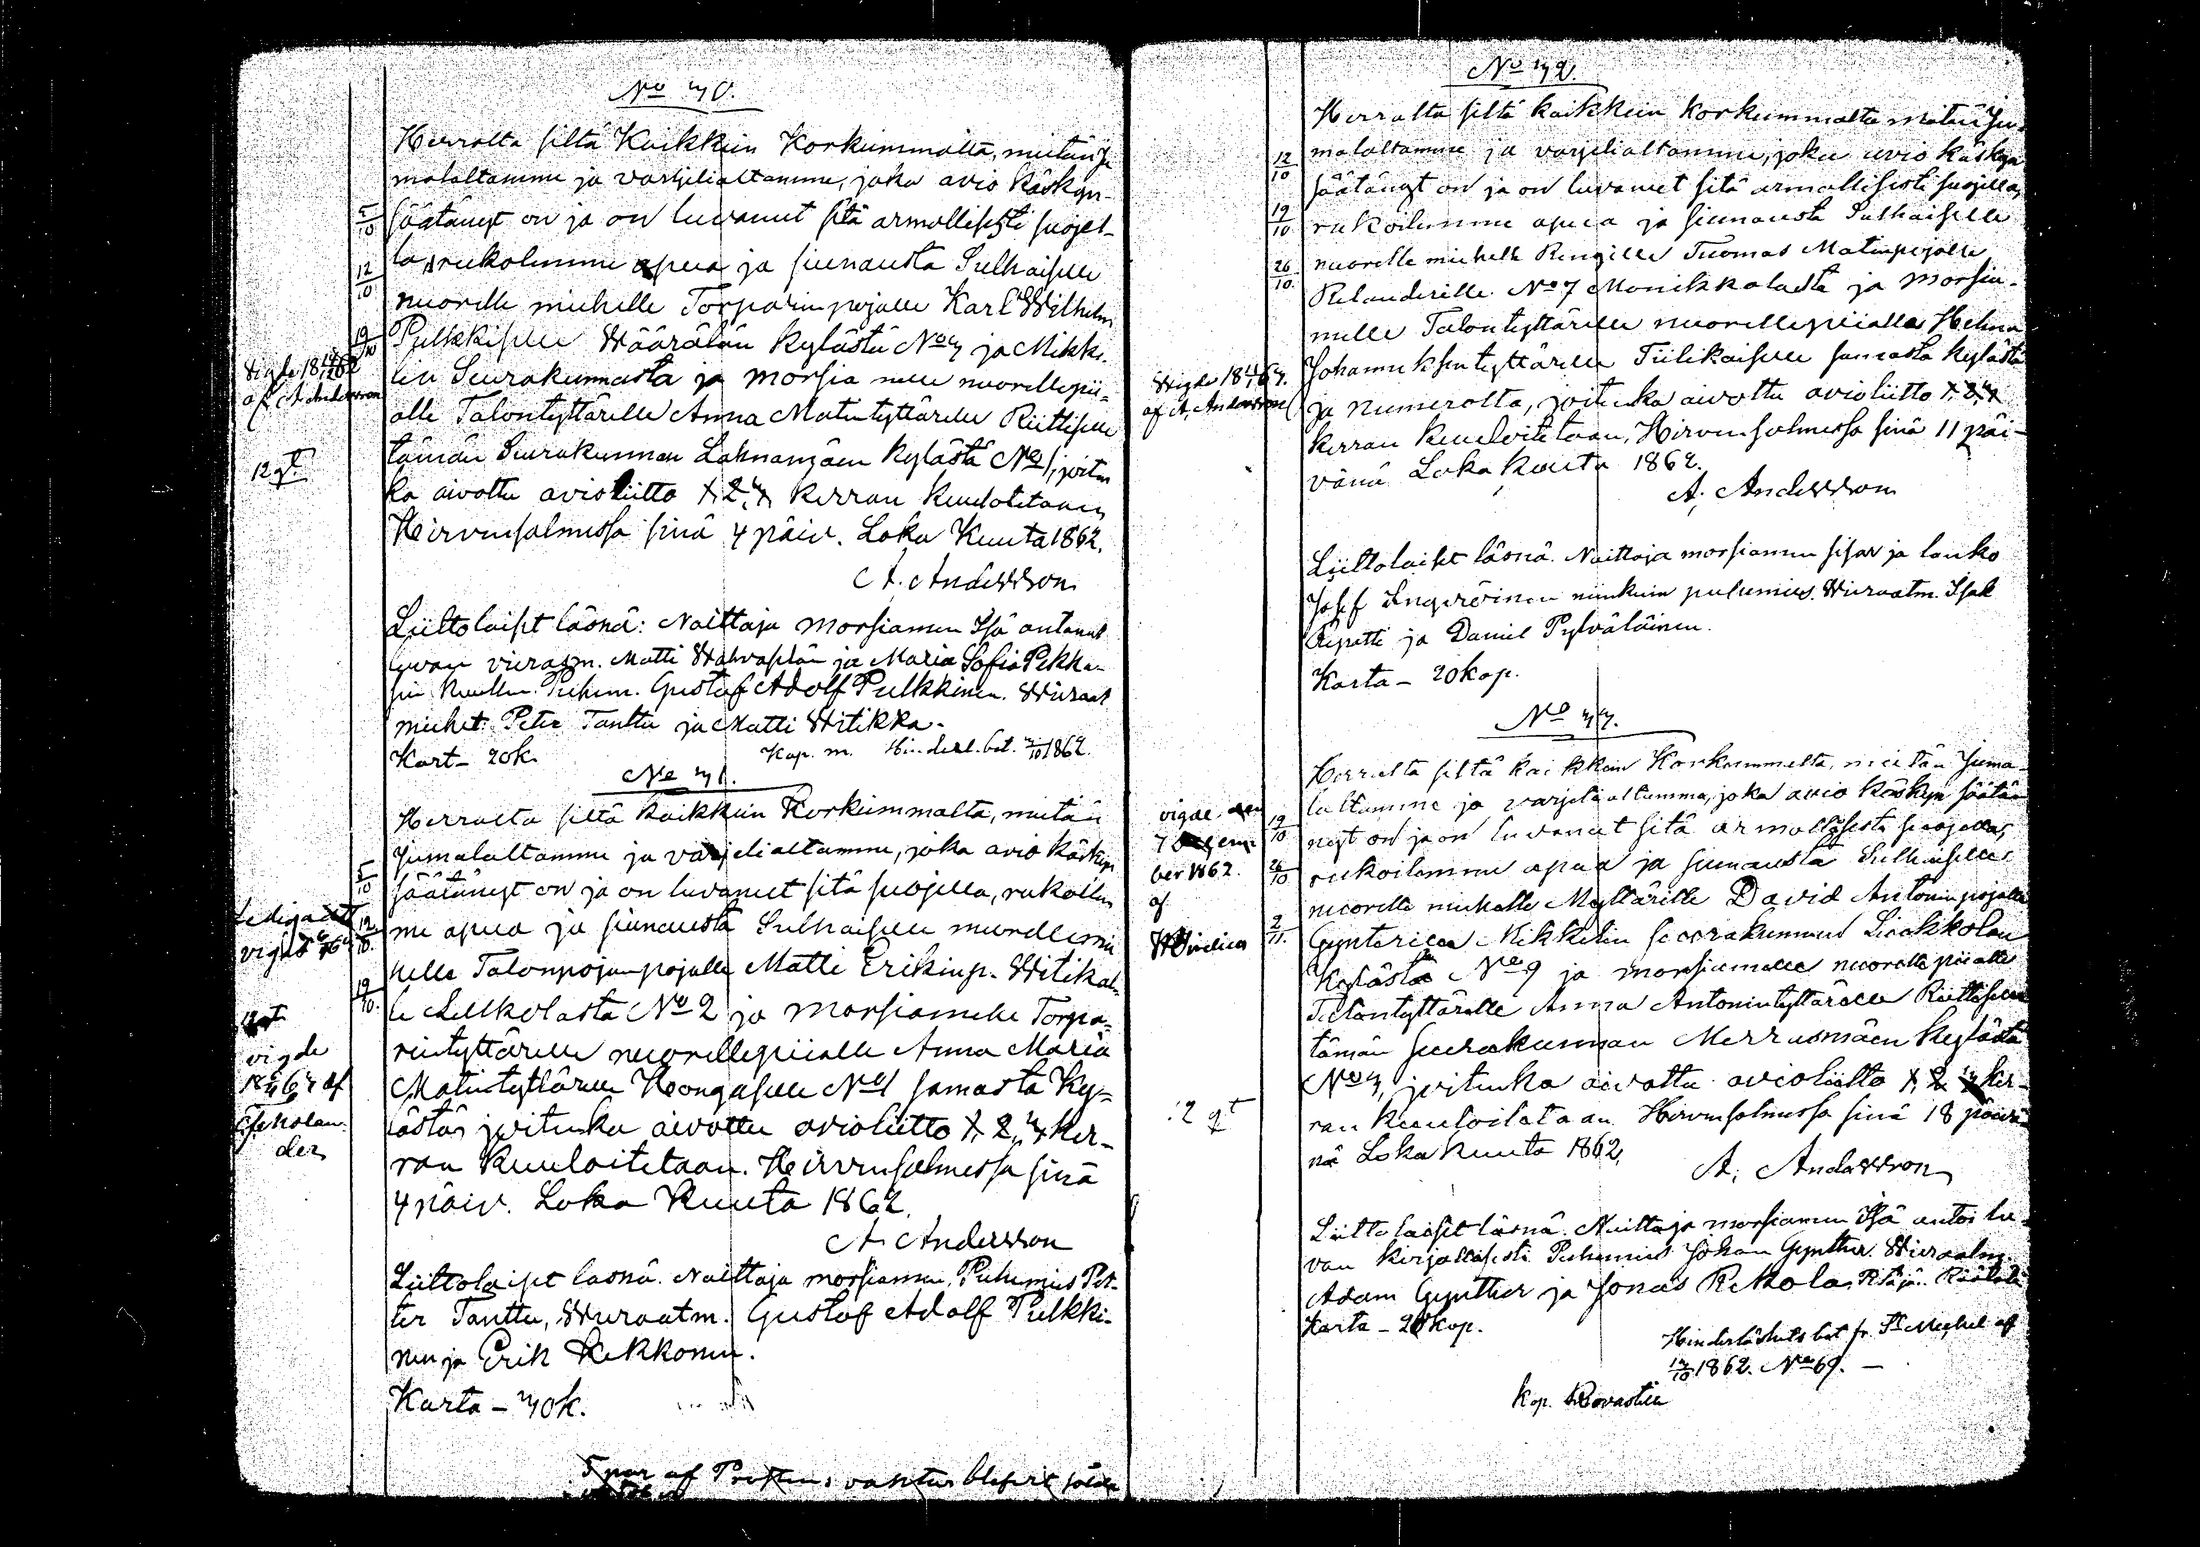 No 30.
Herralta siltä Kaikkein Korkeimmalta, meitän Ju
malaltamme ja varjelialtamme, joka avio käskyn
säätänyt on ja on luvannut sitä armollisesti suojel-
la, rukolemme apua ja siunausta Sulhaiselle
nuorelle miehelle Torparin pojalle Karl Wilhelm
Pulkkiselle Wäärälän kylästä No 3 ja Mikke-
lin Seurakunnasta ja morsia melle nuorellepii-
alle Talontyttärelle Anna Matintyttärelle Riittiselle
tämän Seurakunnan Lahnamäen kylästä No 1, joiten
ka aivottu avioliitto 1, 2, 3 kerran kuulotetaan
Hirvensalmessa sinä 4 päiv. Loka Kuuta 1862.
A. Andersson
5/10
12/10
19/10
Vigde 18 62
af A. Andersson
12 qt
Liittolaiset läsnä: Naittaja morsiamen Isä antanut
luvan vierasm. Matti Wahvaselän ja Maria Sofia Pekka-
sen kuullen. Puhem. Gustaf Adolf Pulkkinen. Wieraat
miehet: Peter Tanttu ja Matti Witikka.
Kart - 20k. Kap. m. Hinderl. bet. 3/10 1862.
No 31.
Herralta siltä kaikkein Korkeimmalta, meitän
Jumalaltamme ja varjelialtamme, joka avio käskyn
säätänyt on ja on luvannut sitä suojella, rukoilem
me apua ja siunausta Sulhaiselle nuorellemie
helle Talonpojanpojalle Matti Erikinp. Witikal-
le Lelkolasta No 2 ja morsiamelle Torpa-
rintyttärelle nuorellepiialle Anna Maria
Matintyttärelle Kongaselle No 1 samasta Ky-
lästä, joitenka aivottu avioliitto 1, 2, 3 ker-
ran kuuloitetaan. Hirvensalmessa sinä
4 päiv. Loka Kuuta 1862.
A. Andersson
5/10
12/10
19/10
vigde
af
Scholan-
der
Liittolaiset läsnä. Naittaja morsiamen, Puhemies Pet-
ter Tanttu, Wieraatm. Gustof Adolf Pulkki-
nen ja Erik Kekkonen.
Karta - 30k.
5 par af
No 32.
Herralta siltä kaikkein Korkeimmalta meitän Ju-
malaltamme ja varjelialtamme, joka avio käskyn
säätänyt on ja on luvannut sitä armollisesti suojella,
rukoilemme apua ja siunausta Sulhaiselle
nuorelle miehelle Rengille Tuomas Matinpojalle
Relanderille No 7 Monikkalasta ja morsia-
melle Talontyttärelle nuorellepiialle Helena
Johanneksentyttärelle Tiilikaiselle samasta kylästä
ja numerolta, joitenka aivottu avioliitto 1, 2, 3
kerran kuuloitetaan, Hirvensalmessa sinä 11 päi-
vänä Loka kuuta 1862.
A. Andersson
12/10
19/10
26/10
Vigde 18 63.
af A. Andersson
Liittolaiset läsnä. Naittaja morsiamen sisar ja lanko
Josef Ingeröinen niinkuin puhemies. Wieraatm. Isak
Lepatti ja Daniel Pylväläinen.
Karta - 20kop.
No 33.
Herralta siltä kaikkein Korkeimmalta, meitän Juma-
laltamme ja varjelialtamme, joka avio käskyn säätä-
nyt on ja on luvannut sitä armollisesti suojella,
rukoilemme apua ja siunausta Sulhaiselle
nuorelle miehelle Myllärille David Antoninpojalle
Gynterille Mikkelin seurakunnan Liukkolan
Kylästä No 9 ja morsiamelle nuorelle piialle
Talontyttärelle Anna Antonintyttärelle Riittiselle
tämän seurakunnan Merrasmäen kylästä
No 3, joitenka aivottu avioliitto 1, 2, 3 ker-
ran kuuloitetaan Hirvensalmessa sinä 18 päivä-
nä Loka kuuta 1862.
A. Andersson
19/10
26/10
2/11.
vigde den
7
ber 1862.
af
12 qt
Liittolaiset läsnä. Naittaja morsiamen Isä antoi lu-
van kirjallisesti Puhemies Johan Gynther Wieraatm.
Adam Gynther ja Jonas Rekola
Karta - 20kop.
Hinderlöshets bet fr. St Michel af
13/10 1862. No 69. -
kop. Rovastille